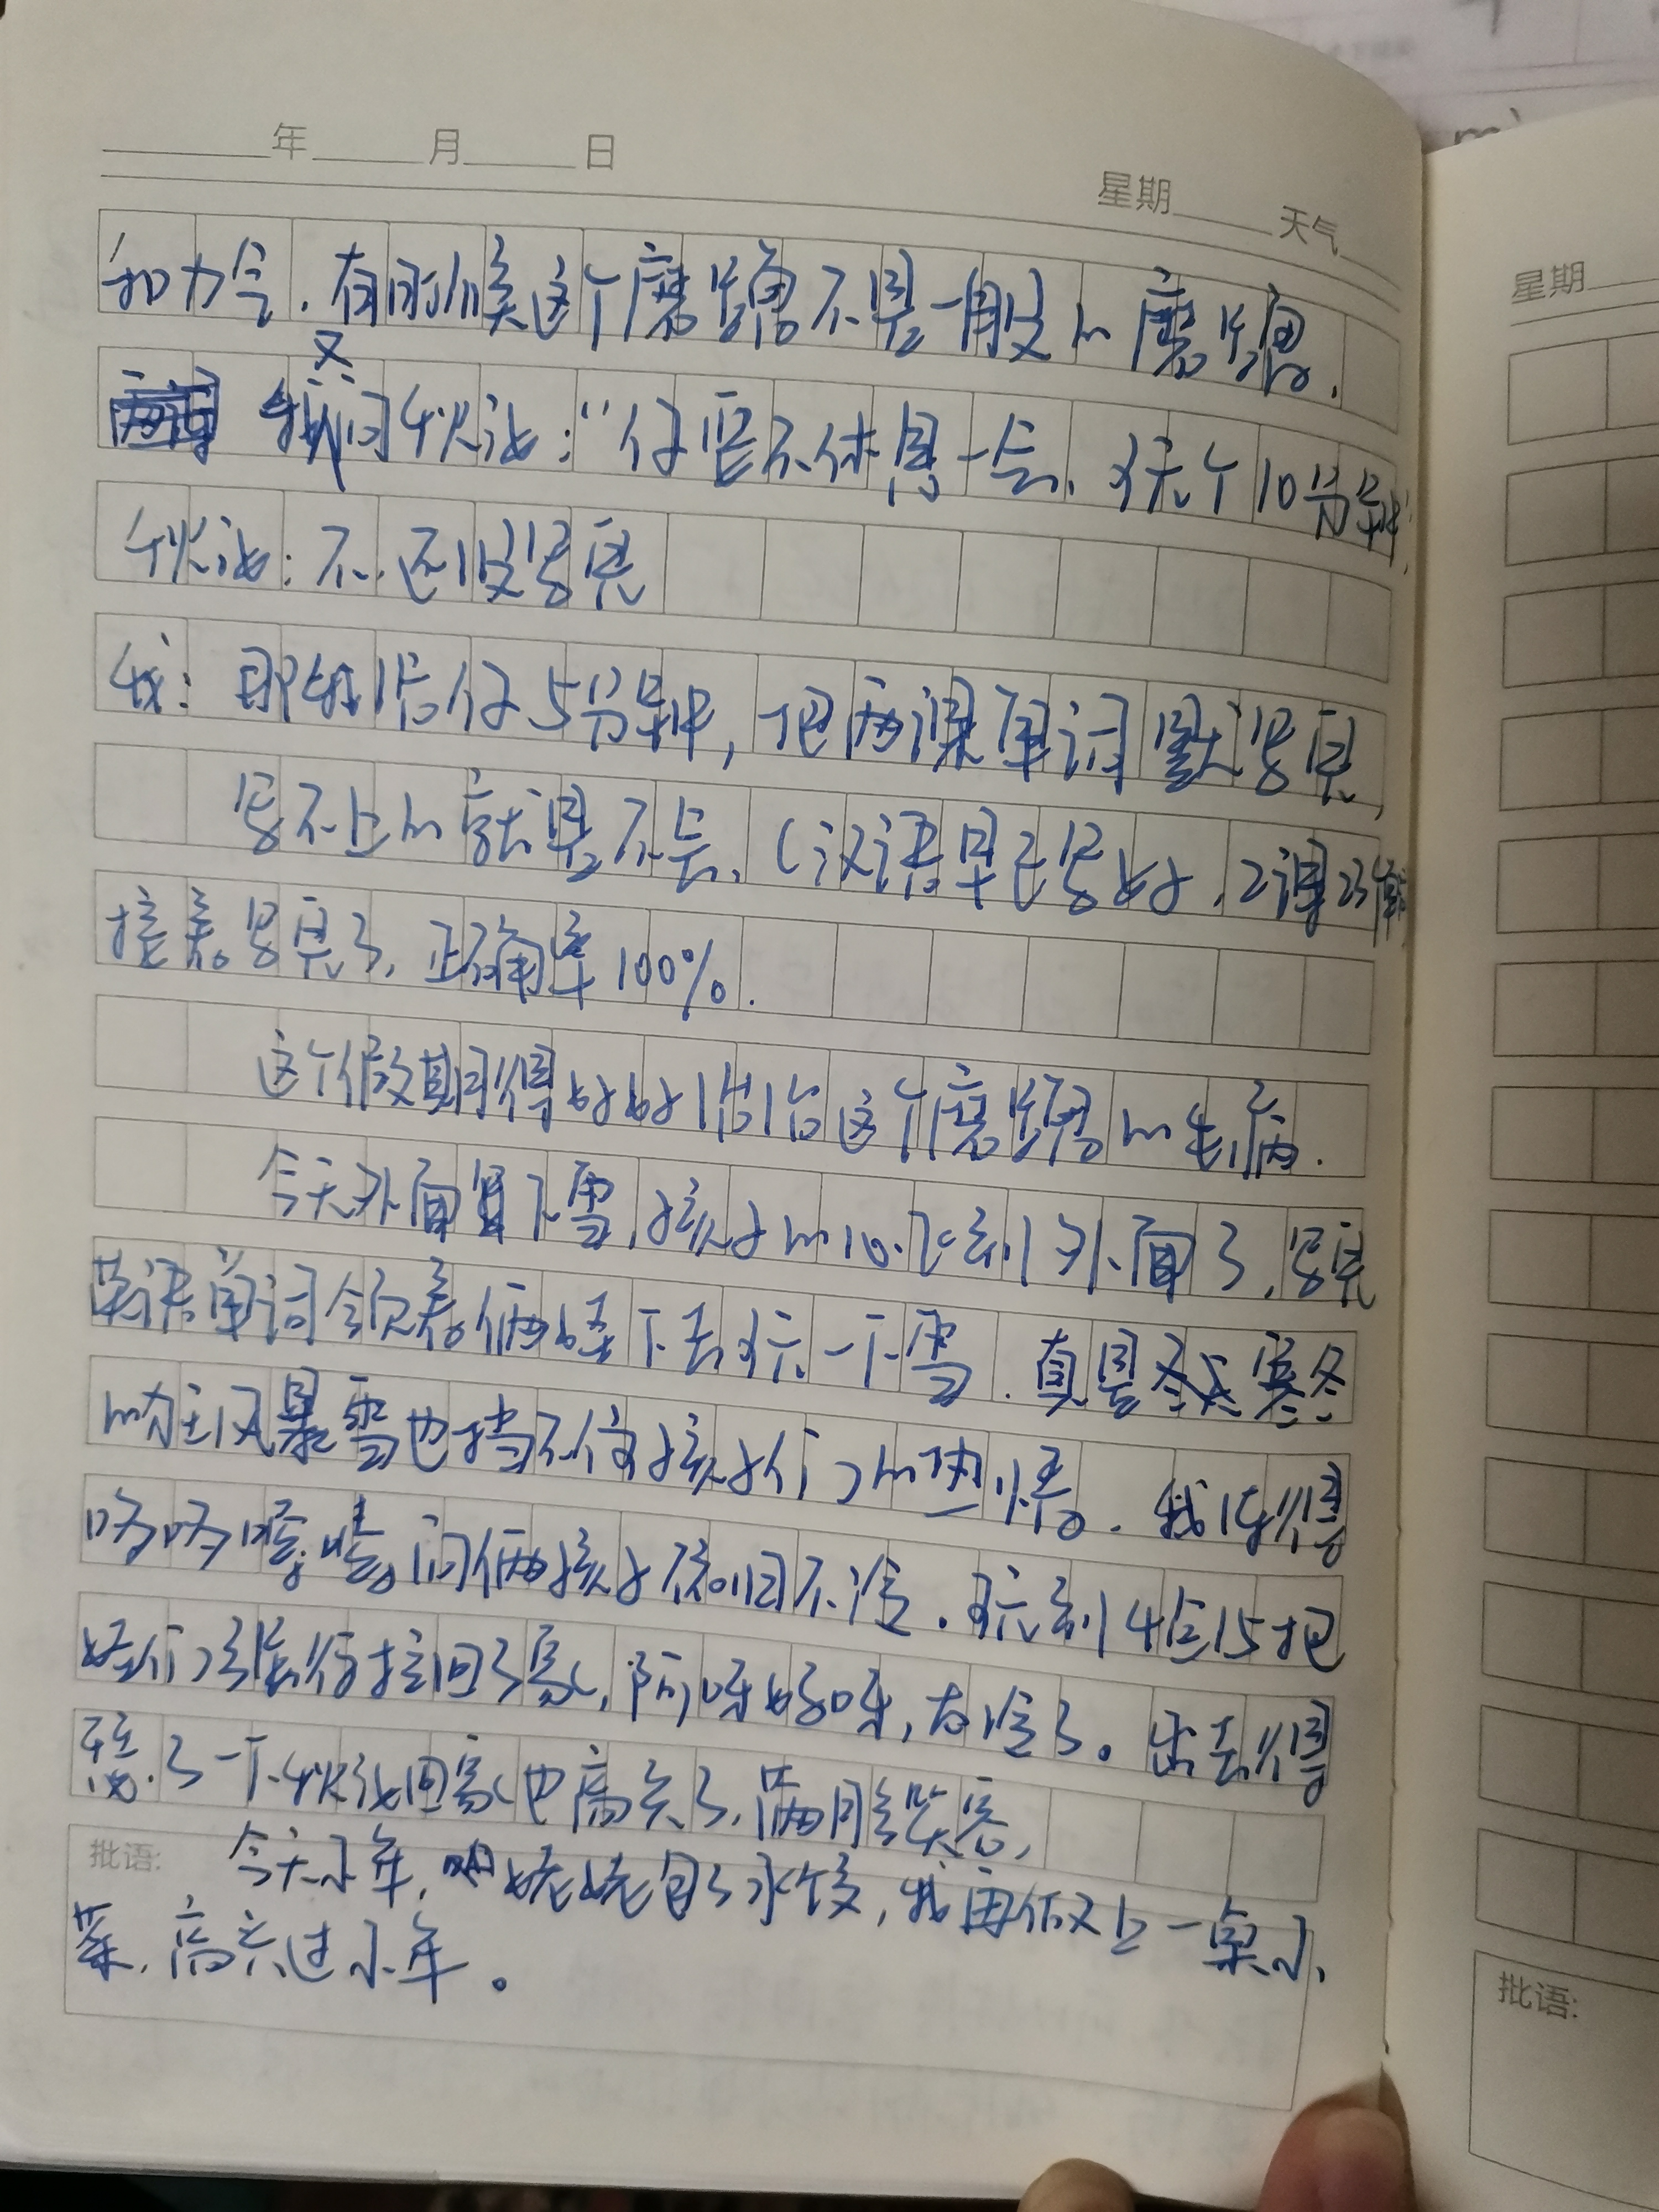 年 月 日
星期 天气
如力今.有时候这个磨蹭不是一般的磨蹭.
又
我问秋池:"你要不休息一会.玩个10分钟
秋池:不.还没写完
我:那给你5分钟,把两课单词默写完,
写不上的就是不会.(汉语早已写好,2课23个
接着写完了.正确率100%.
这个假期得好好治治这个磨蹭的毛病.
今天外面是下雪,孩子的心飞到外面了,写完
英语单词领着俩娃下去玩一下雪.真是冬天寒冬
的狂风暴雪也挡不住孩子们的热情.我冻得
哆哆嗦嗦问俩孩子都回不准.玩到4点15把
娃们强行拉回了家,阿呀妈呀,太冷了。出去得
瑟了一下.秋池回家也高兴了,满脸笑容,
批语: 今天小年,姥姥包了水饺,我再做上一桌小
菜.高兴过小年。
星期
批语: